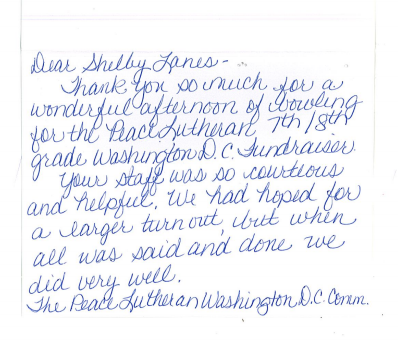 Dear Shelby Lanes -
Thank you so much for a
wonderful afternoon of bowling
for the Peace Lutheran 7th / 8th
grade Washington D.C. Fundraiser.
Your staff was so courtious
and helpful. We had hoped for
a larger turn out, but when
all was said and done we
did very well.
The Peace Lutheran Washington D.C. Comm.